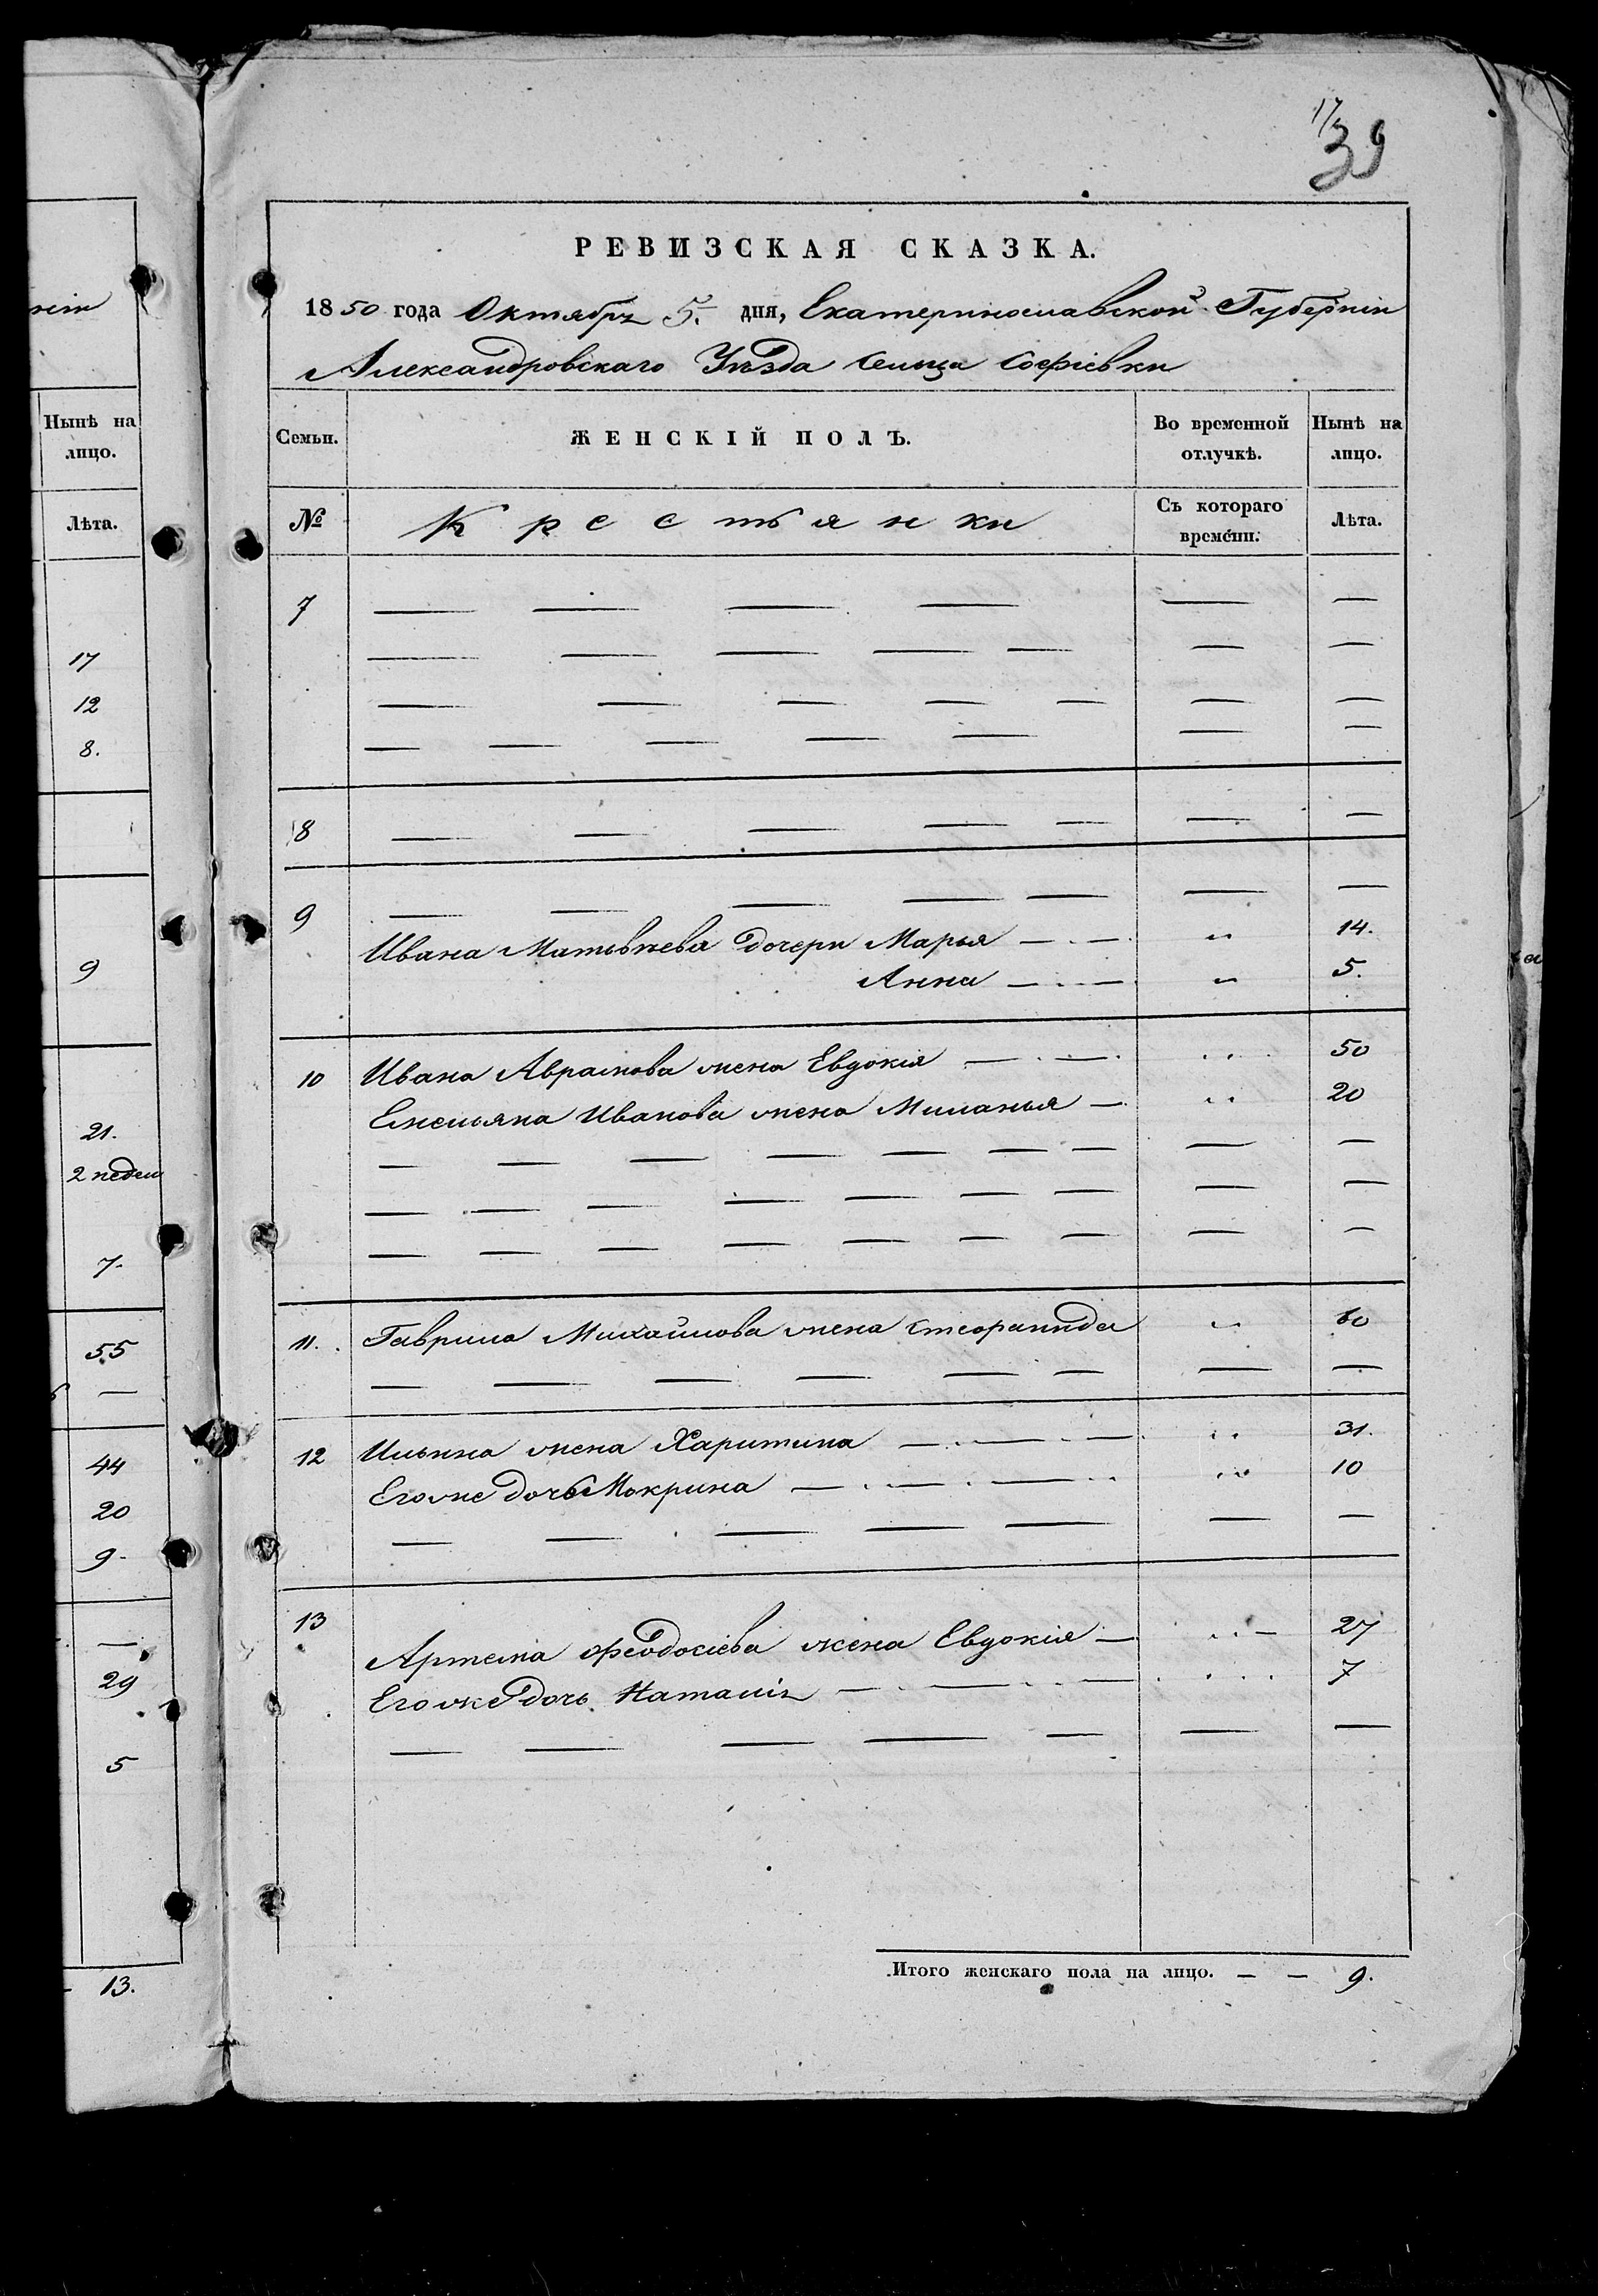 17
39
нiи
Нынѣ на
лицо.
Лѣта.
17
12
8.
9
21.
2 недели
7.
55
—
44
20
9.
—
29
5
13.
РЕВИЗСКАЯ СКАЗКА.
1850 года Октября 5. дня, Екатеринославской Губернiи
Александровскаго Уѣзда сельца Софiевки
Семьи. ЖЕНСКIЙ ПОЛЪ. Во временной отлучкѣ. Нынѣ на лицо.
№ Крестьянки Съ котораго времени. Лѣта.
7 — — — — — —
— — — — — — —
— — — — — — —
— — — — — — —
8 — — — — — — —
9 — — — — — — —
Ивана Матвѣева дочери Марья — — „ 14.
Анна — — „ 5.
10 Ивана Аврамова жена Евдокiя — — „ 50
Емельяна Иванова жена Миланья — „ 20
— — — — — — — — —
— — — — — — — — —
— — — — — — — — —
11. Гаврила Михайлова жена Степанида „ 60
— — — — — — — —
12 Ильина жена Харитина — — — „ 31.
Его же дочь Мокрина — — — „ 10
— — — — — — —
13
Артема Феодосiева жена Евдокiя — „ — 27
Его же дочь Наталiя — — — „ 7
— — — — — — —
Итого женскаго пола на лицо. — — 9.